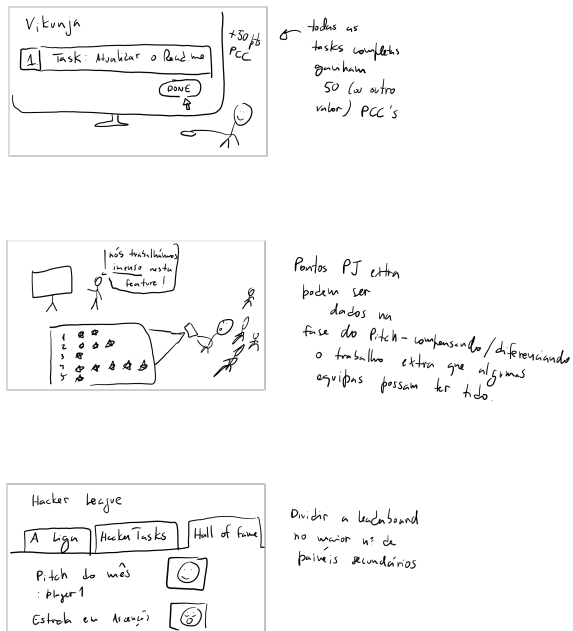 Vikunja
1 Task: Atualizar o Read.me
DONE
+50 pts
PCC
todas as
tasks completas
ganham
50 (ou outro
valor) PCC's
nós trabalhámos
imenso nesta
feature!
1
2
3
4
5
Pontos PJ extra
podem ser
dados na
fase do Pitch - compensando/diferenciando
o trabalho extra que algumas
equipas possam ter tido.
Hacker League
A Liga Hacker Tasks Hall of fame
Pitch do mês
: player 1
Estrela em Ascenção
Dividir a leaderboard
no maior nº de
painéis secundários